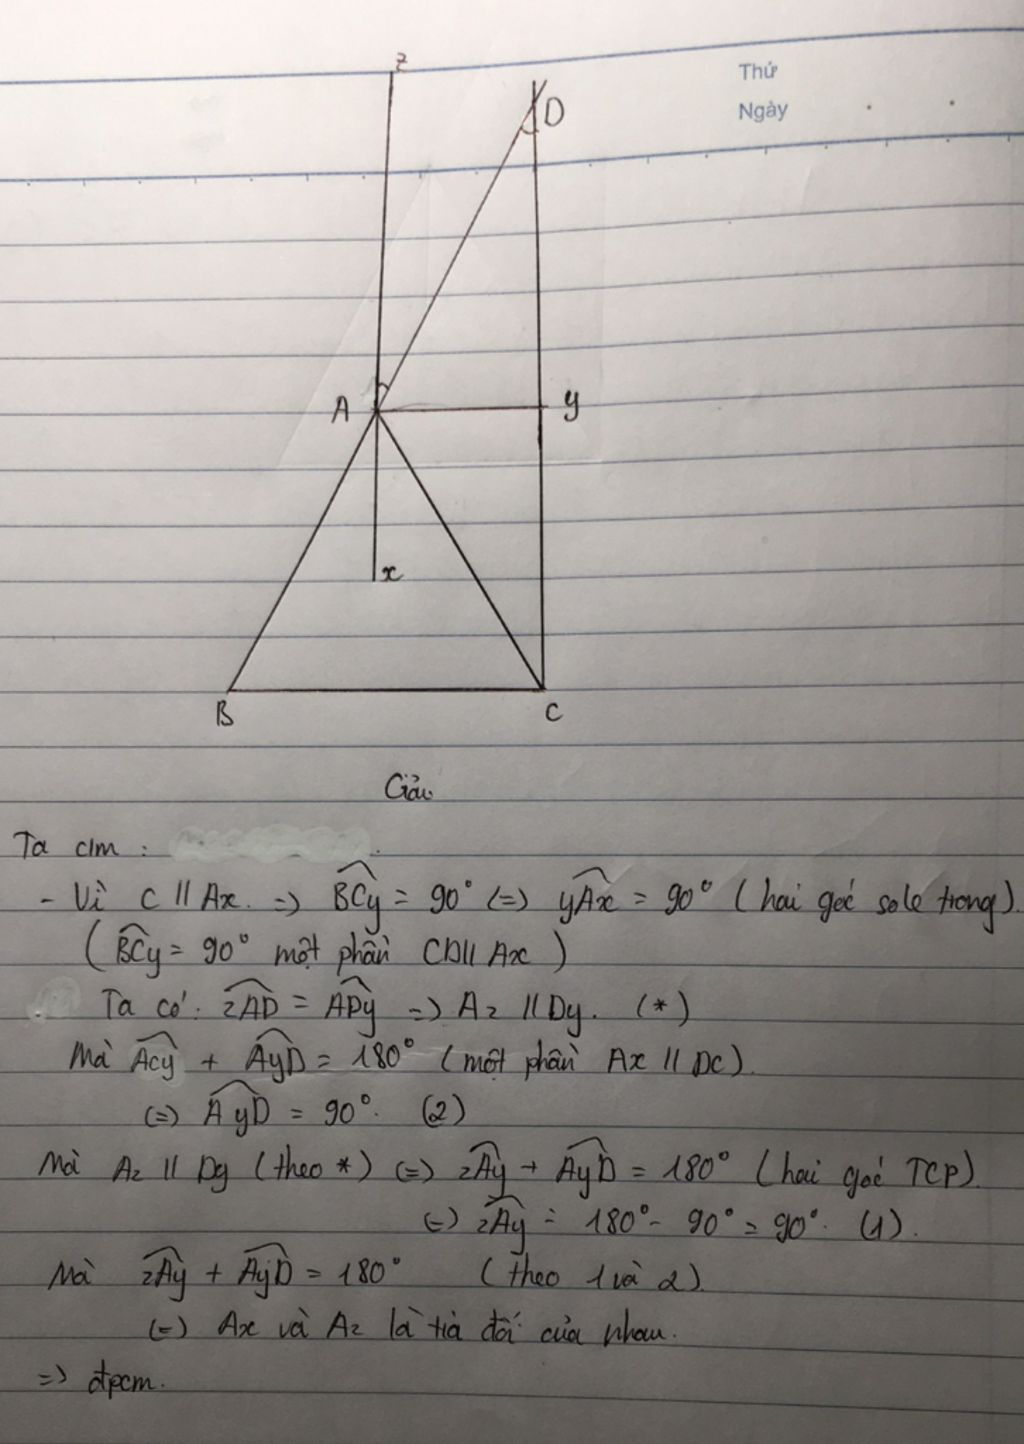 z
Thứ
D
Ngày
A
y
x
B
C
Giải
Ta c/m :
- Vì C // Ax. => BCy = 90° (=) yAx = 90° (hai góc sole trong).
(BCy = 90° một phần CD // Ax)
Ta có: zAD = ADy => Az // Dy. (*)
Mà Acy + AyD = 180° (một phần Ax // DC).
(=) AyD = 90°. (2)
Mà Az // Dy (theo *) (=) zAy + AyD = 180° (hai góc TCP).
(=) zAy = 180° - 90° = 90°. (1).
Mà zAy + AyD = 180° (theo 1 và 2).
(=) Ax và Az là tia đối của nhau.
=> đpcm.